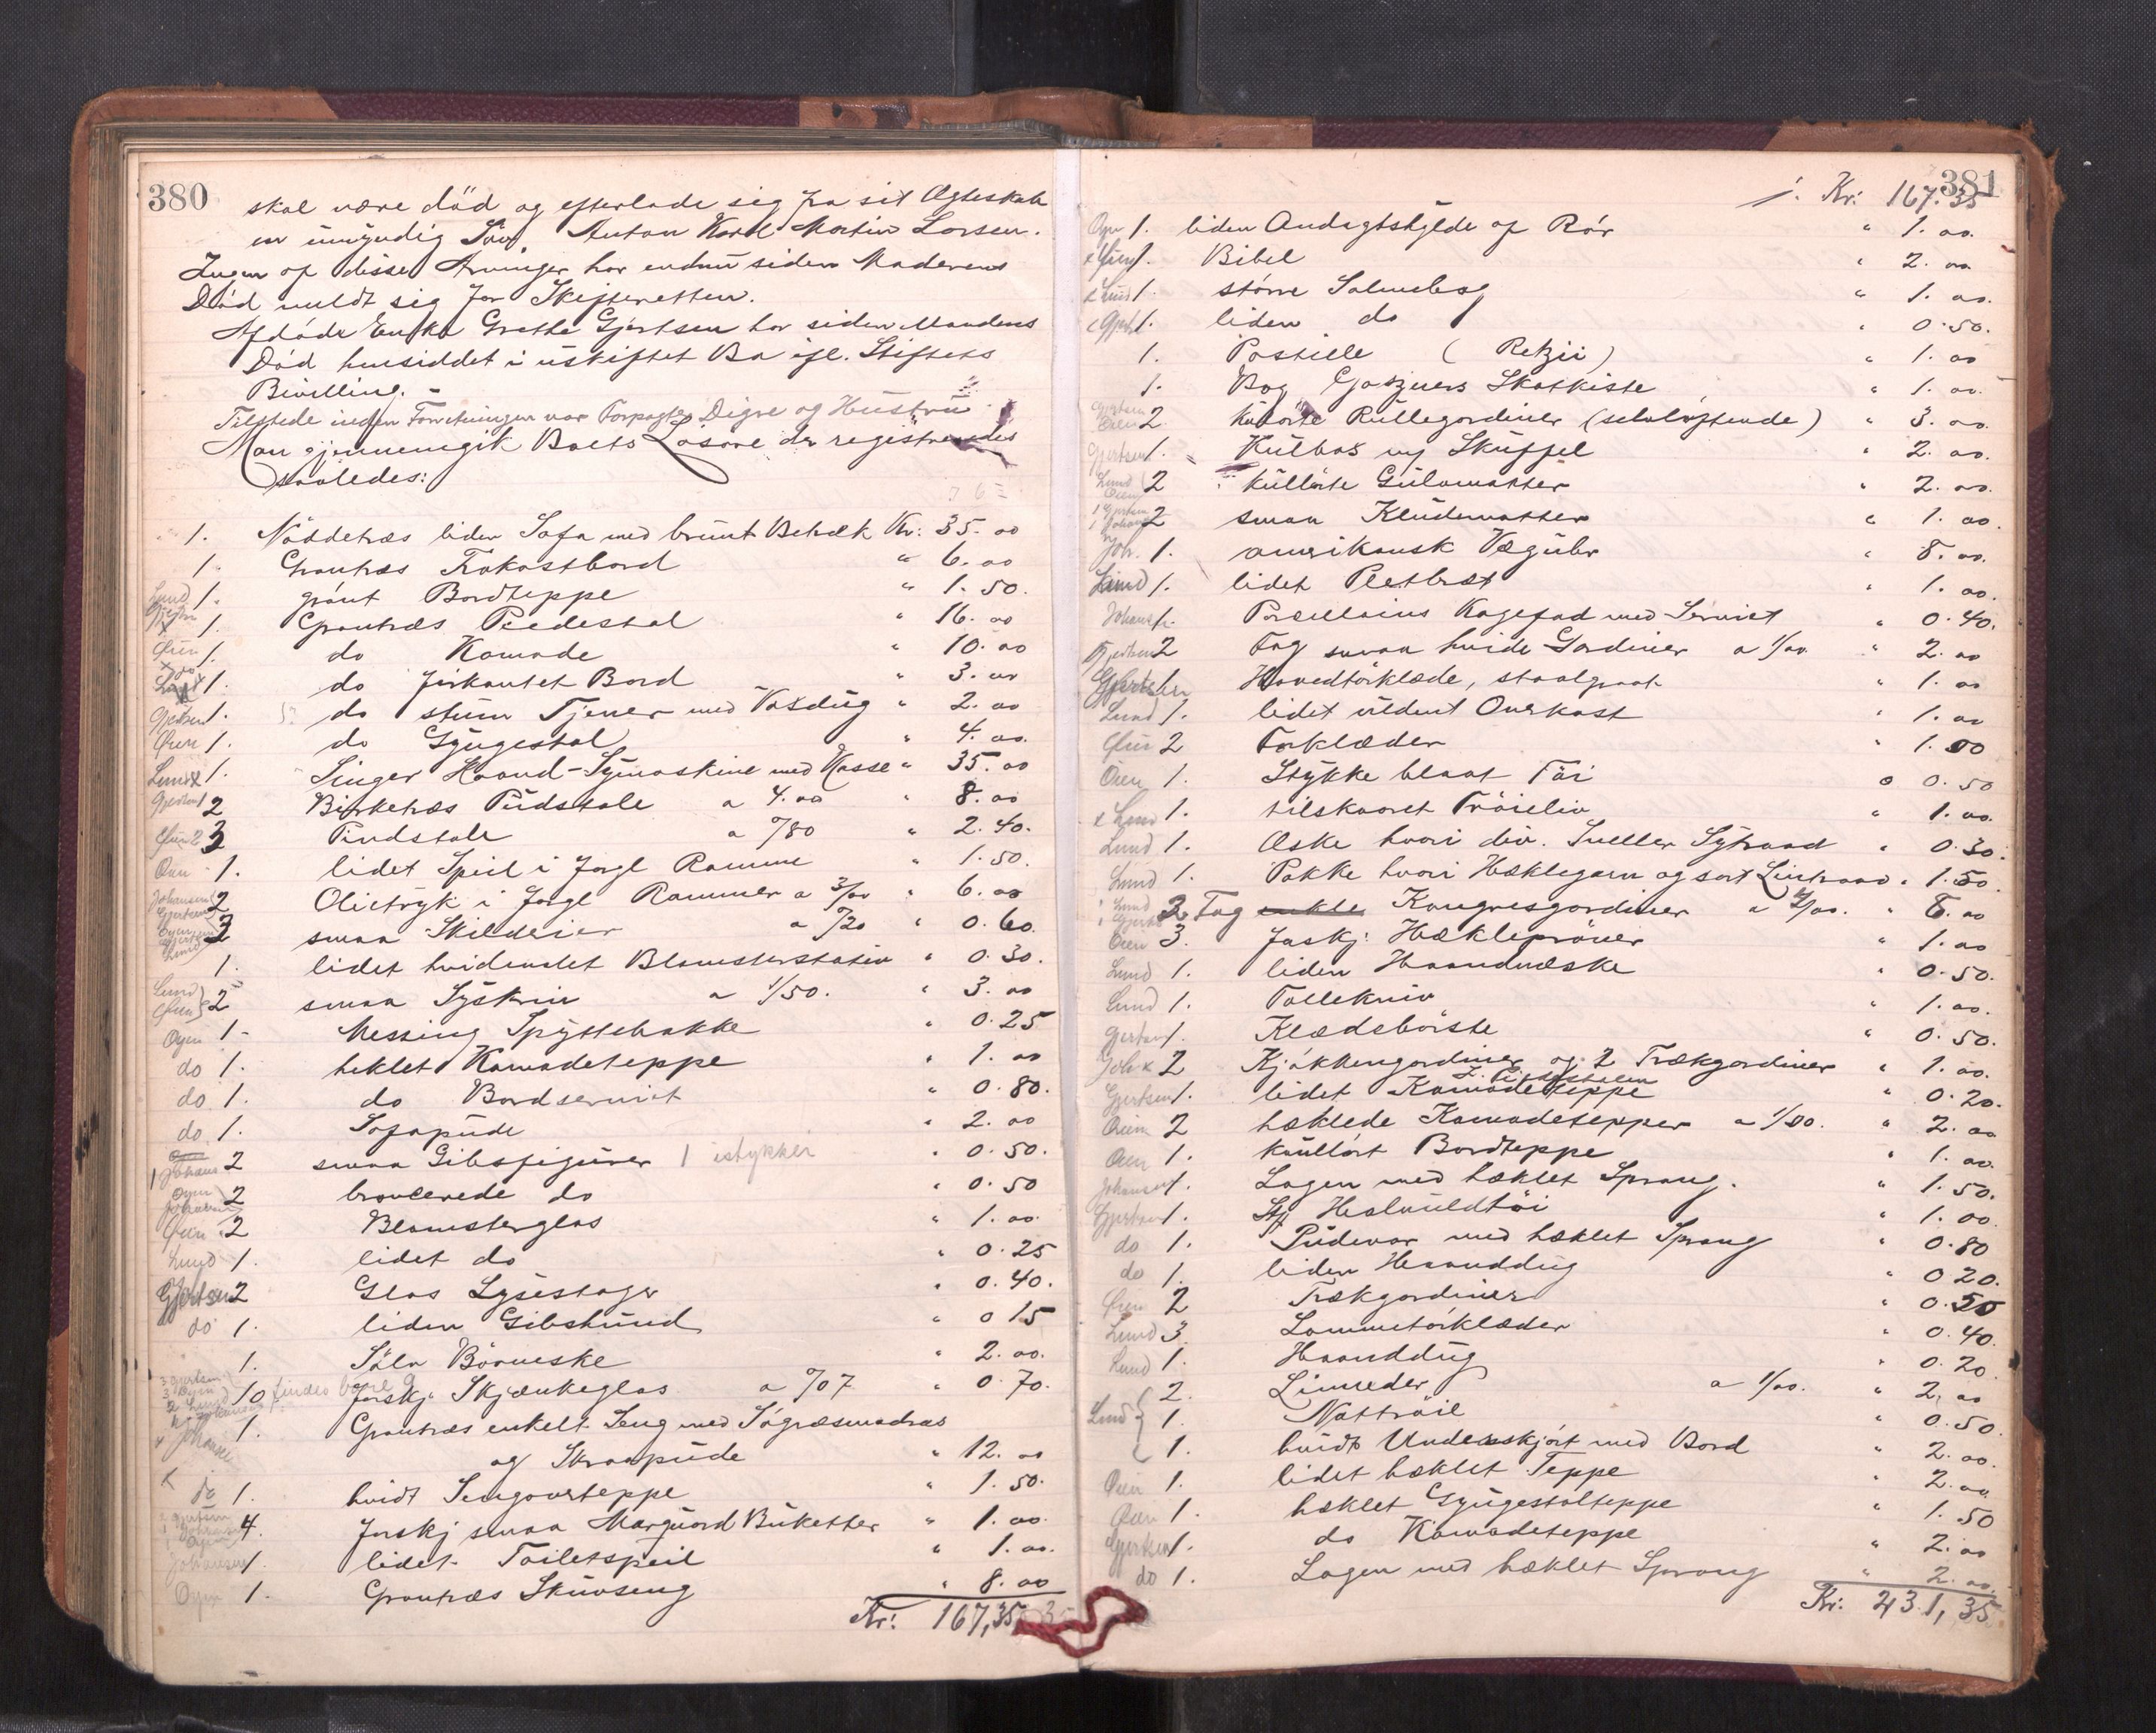 380
skal være död og efterlade sig fra sit Ægteskab
en umyndig Søn, Anton Karl Martin Larsen.
Ingen af disse Arvinger har endnu siden Moderens
Död meldt sig for Skifteretten.
Afdöde Enke Grethe Gjertsen har siden Mandens
Död hensiddet i uskiftet Bo ifl. Stiftets
Bevilling.
Tilstede under Forretningen var Forpagter Digre og Hustru
Man gjennemgik Boets Lösöre der registreredes
saaledes:
1. Nöddetræs liden Sofa med brunt Betræk Kr: 35. 00
1. Grantræs Frokostbord " 6. 00
Lund 1. grönt Bordteppe " 1. 50.
Gjertsen 1. Grantræs Piedestal " 16. 00
Öien 1. do Komode " 10. 00
1. do firkantet Bord " 3. 00
Gjertsen 1. do stum Tjener med Voxdug " 2. 00
Öien 1. do Gyngestol " 4. 00.
Lund x 1. Singer Haand-Symaskine med Kasse " 35. 00
Gjertsen 2 Birketræs Pindstole a 4. 00 " 8. 00
Öien 2 3 Pindstole a 0/80 " 2. 40.
Öien 1. lidet Speil i forgl Ramme " 1. 50.
Johansen 2 Olietryk i forgl Rammer a 3/00 " 6. 00
Gjertsen Oyen Lund 3 smaa Skilderier a 0/20 " 0. 60.
1. lidet hvidmalet Blomsterstativ " 0. 30.
Lund Öien 2 smaa Syskrin a 1/50. " 3. 00
Oyen 1. Messing Spyttebakke " 0. 25
do 1. heklet Komodeteppe " 1. 00
do 1. do Bordserviet " 0. 80.
do 1. Sofapude " 2. 00
1 Johans 2 smaa Gibsfigurer 1 istykker " 0. 50.
Oyen Johansen 2 broncerede do " 0. 50
Öien 2 Blomsterglas " 1. 00.
Lund 1. lidet do " 0. 25
Gjertsen 2 Glas Lysestager " 0. 40.
do 1. liden Gibshund " 0 15
1. Sölv Börneske " 2. 00.
3 Gjertsen 3 Oyen 2 Lund 10 findes bare 9 forskj. Skjænkeglas a 0/07 " 0. 70.
Johansen 1. Grantræs enkelt Seng med Sögræsmadras
og Skraapude " 12. 00
do 1. hvidt Sengoverteppe " 1. 50.
Gjertsen 1 Johansen 1 Oyen 4. forskj smaa Marquard Buketter " 1. 00.
Johansen 1. lidet Toiletspeil " 1. 00.
Oyen 1. Grantræs Skuvseng " 8. 00
Kr: 167,35
381
Kr: 167. 35
Oyen 1. liden Andagtshylde af Rör " 1. 00.
x Öien 1. Bibel " 2. 00
x Lund 1. större Salmebog " 1. 00.
x Gjerts 1. liden do " 0. 50.
1. Postille (Retzii) " 1. 00
1. Bog Goszners Skatkiste " 1. 00
Gjertsen Öien 2 kulörte Rullegardiner (selvløftende) " 3. 00.
Gjertsen 1. Kulbox og Skuffel " 2. 00.
Lund Öien 2 kullörte Gulvmatter " 2. 00.
1 Gjertsen 1 Johans 2 smaa Kludematter " 1. 00.
Joh. 1. amerikansk Vægühr " 8. 00.
Lund 1. lidet Pletbræt " 1. 00.
Johans 1. Porcellains Kagefad med Serviet " 0. 40.
Gjertsen 2 Fag smaa hvide Gardiner a 1/00 " 2. 00
Gjertsen 1. Hovedtörklæde, staalgraat " 1. 00
Lund 1. lidet uldent Overkast " 1. 00
Öien 2 Forklæder " 1. 00
Öien 1. Stykke blaat Töi " 0. 50
x Lund 1. tilskaaret Tröieliv " 1. 00.
Lund 1. Æske hvori div. Sneller Sytraad " 0. 30.
Lund 1. Pakke hvori Hæklegarn og sort Lintraad " 1. 50.
1 Lund 1 Gjerts 2 Fag enkle Kongresgardiner " 6. 00
Öien 3. forskj. Hækleprøver " 1. 00
Lund 1. liden Haandvæske " 0. 50.
Lund 1. Tollekniv " 1. 00.
Gjertsen 1. Klædebörste " 0. 50.
Joh x 2 Kjökkengardiner og 2 Trækgardiner " 1. 00.
Gjertsen 1. lidet Komodeteppe " 0. 20.
Öien 2 hæklede Komodetepper a 1/00. " 2. 00
Öien 1. kullört Bordteppe " 1. 00.
Johansen 1. Lagen med hæklet Sprang. " 1. 50.
Gjertsen 1. St Heluldtöi " 1. 00.
do 1. Pudevar med hæklet Sprang " 0. 80
do 1. liden Haanddug " 0 20.
Öien 2 Trækgardiner " 0. 50
Lund 3. Lommetörklæder " 0. 40.
Lund 1. Haanddug " 0. 20
2. Linneder a 1/00. " 2. 00
Lund 1. Nattröie " 0. 50.
1. hvidt Underskjört med Bord " 2. 00.
Öien 1. lidet hæklet Teppe " 2. 00
Öien 1. hæklet Gyngestolteppe " 1. 50
Gjertsen 1. do Komodeteppe " 2. 00
do 1. Lagen med hæklet Sprang " 2. 00.
Kr: 231,35